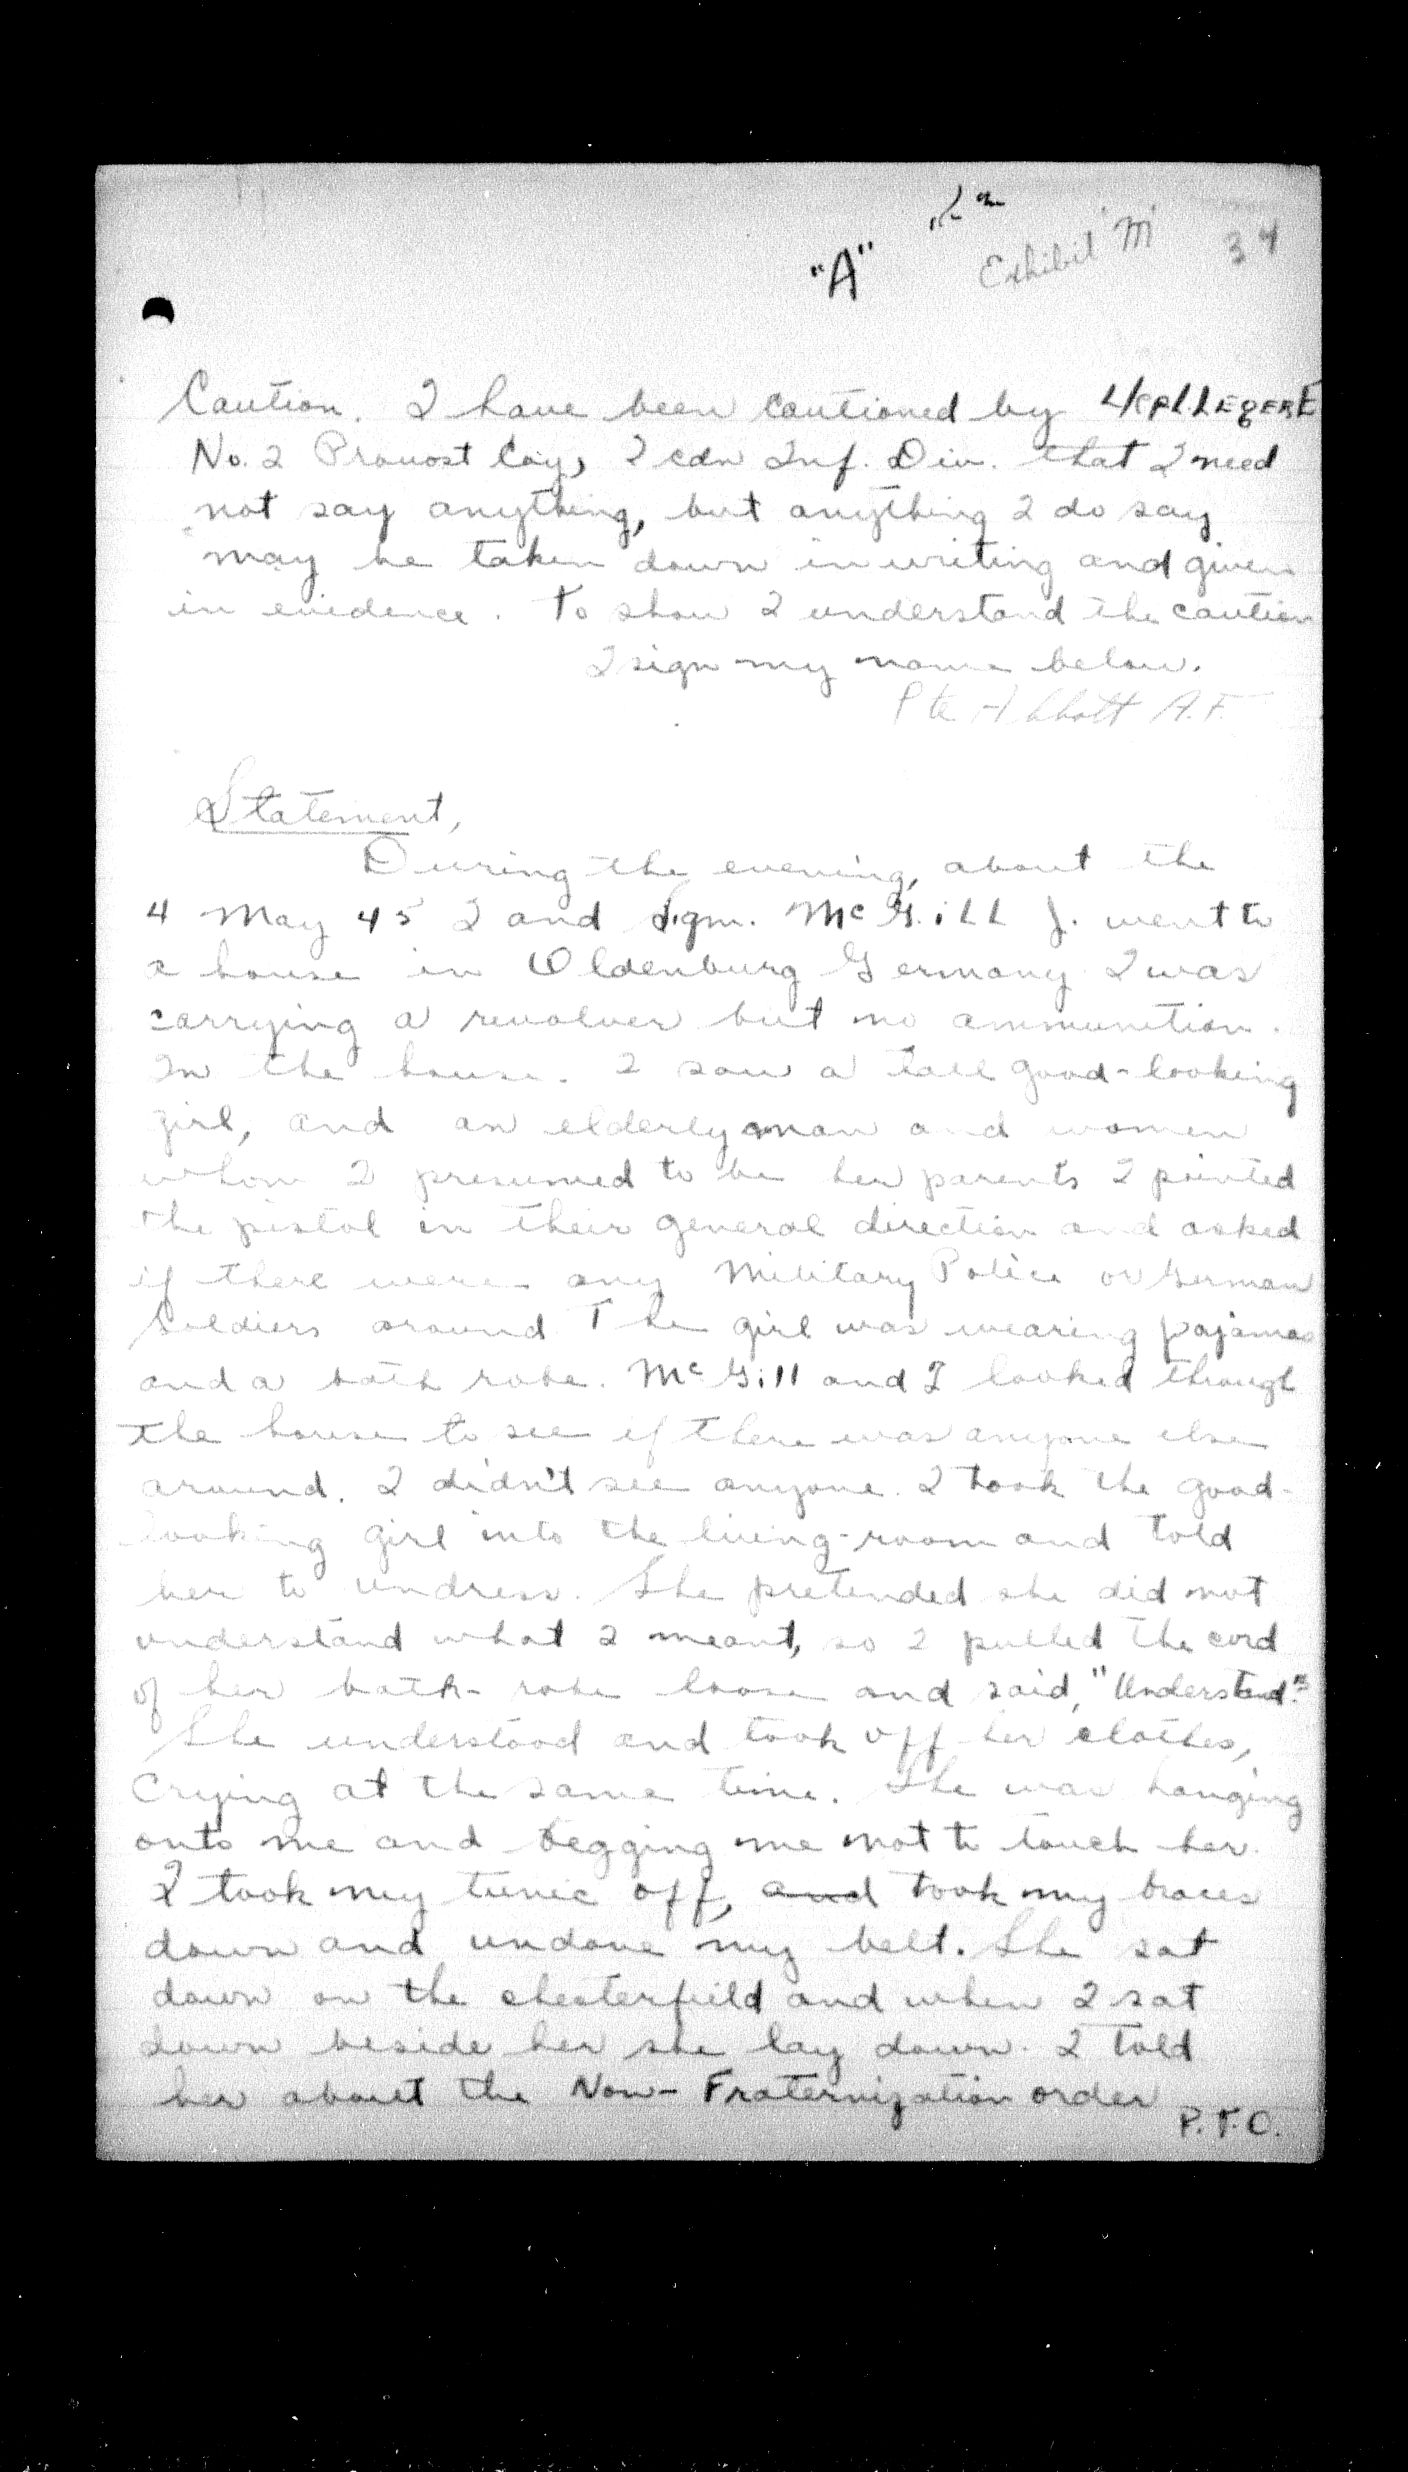 "A"
Exhibit 'M'
34
Caution. I have been cautioned by L/Cpl. LEGERE
No. 2 Provost Coy, 2 cdn Inf. Div. that I need
not say anything, but anything I do say
may be taken down in writing and given
in evidence. To show I understand the caution
I sign my name below.
Pte Abbott A.F.
Statement,
During the evening, about the
4 May 45 I and Sgm. McGill J. went to
a house in Oldenburg Germany I was
carrying a revolver but no ammunition.
In the house. I saw a tall good-looking
girl, and an elderly man and women
whom I presumed to be her parents I pointed
the pistol in their general direction and asked
if there were any Military Police or German
Soldiers around The girl was wearing pajamas
and a bath robe. McGill and I looked through
the house to see if there was anyone else
around. I didn't see anyone. I took the good-
looking girl into the living-room and told
her to undress. She pretended she did not
understand what I meant, so I pulled the cord
of her bath-robe loose and said, "Understand."
She understood and took off her clothes,
Crying at the same time. She was hanging
onto me and begging me not to touch her.
I took my tunic off, and took my braces
down and undone my belt. She sat
down on the chesterfield and when I sat
down beside her she lay down. I told
her about the Non-Fraternization order
P.T.O.